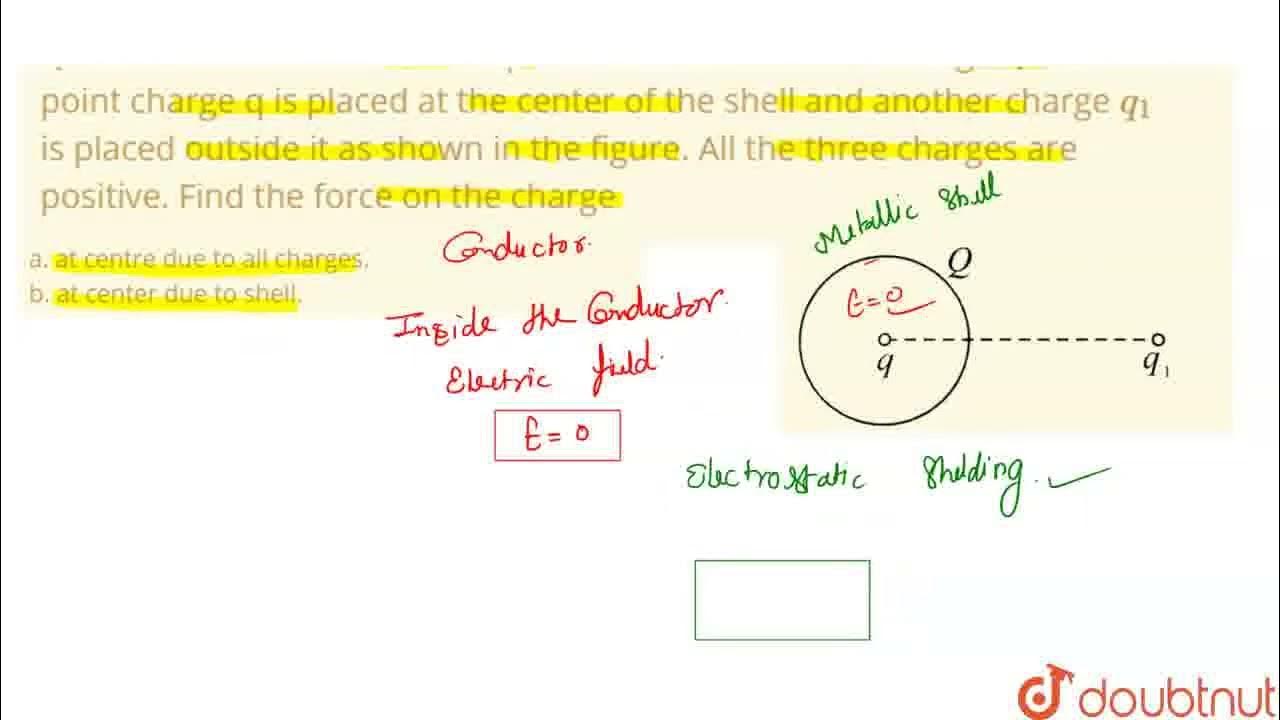 point charge q is placed at the center of the shell and another charge q₁
is placed outside it as shown in the figure. All the three charges are
positive. Find the force on the charge
a. at centre due to all charges.
b. at center due to shell.
Conductor.
Inside the Conductor.
Electric field.
E = 0
Metallic Shell
Q
E = 0
q
q₁
Electrostatic Shelding.
doubtnut